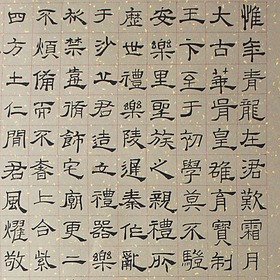 惟年青龍左君歎霜月
大古華胥皇雄育寶制
王卞至于初學莫不驗
安樂里聖族之親禮所
歷世禮樂陵遲秦作亂
于沙丘君造立禮器樂
柉禁壺脩飾宅廟更二
不煩備而不奢上合紫
四方土仁聞君風耀敬